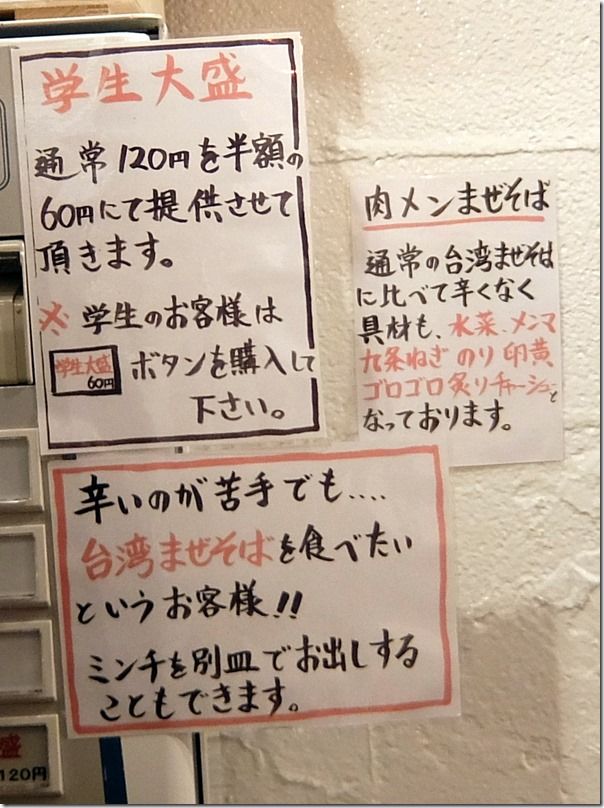 学生大盛
通常120円を半額の
60円にて提供させて
頂きます。
※学生のお客様は
学生大盛
60円
ボタンを購入して
下さい。
肉メンまぜそば
通常の台湾まぜそば
に比べて辛くなく
具材も、水菜、メンマ
九条ねぎ のり 卵黄
ゴロゴロ炙りチャーシューと
なっております。
辛いのが苦手でも....
台湾まぜそばを食べたい
というお客様!!
ミンチを別皿でお出しする
こともできます。
盛
120円